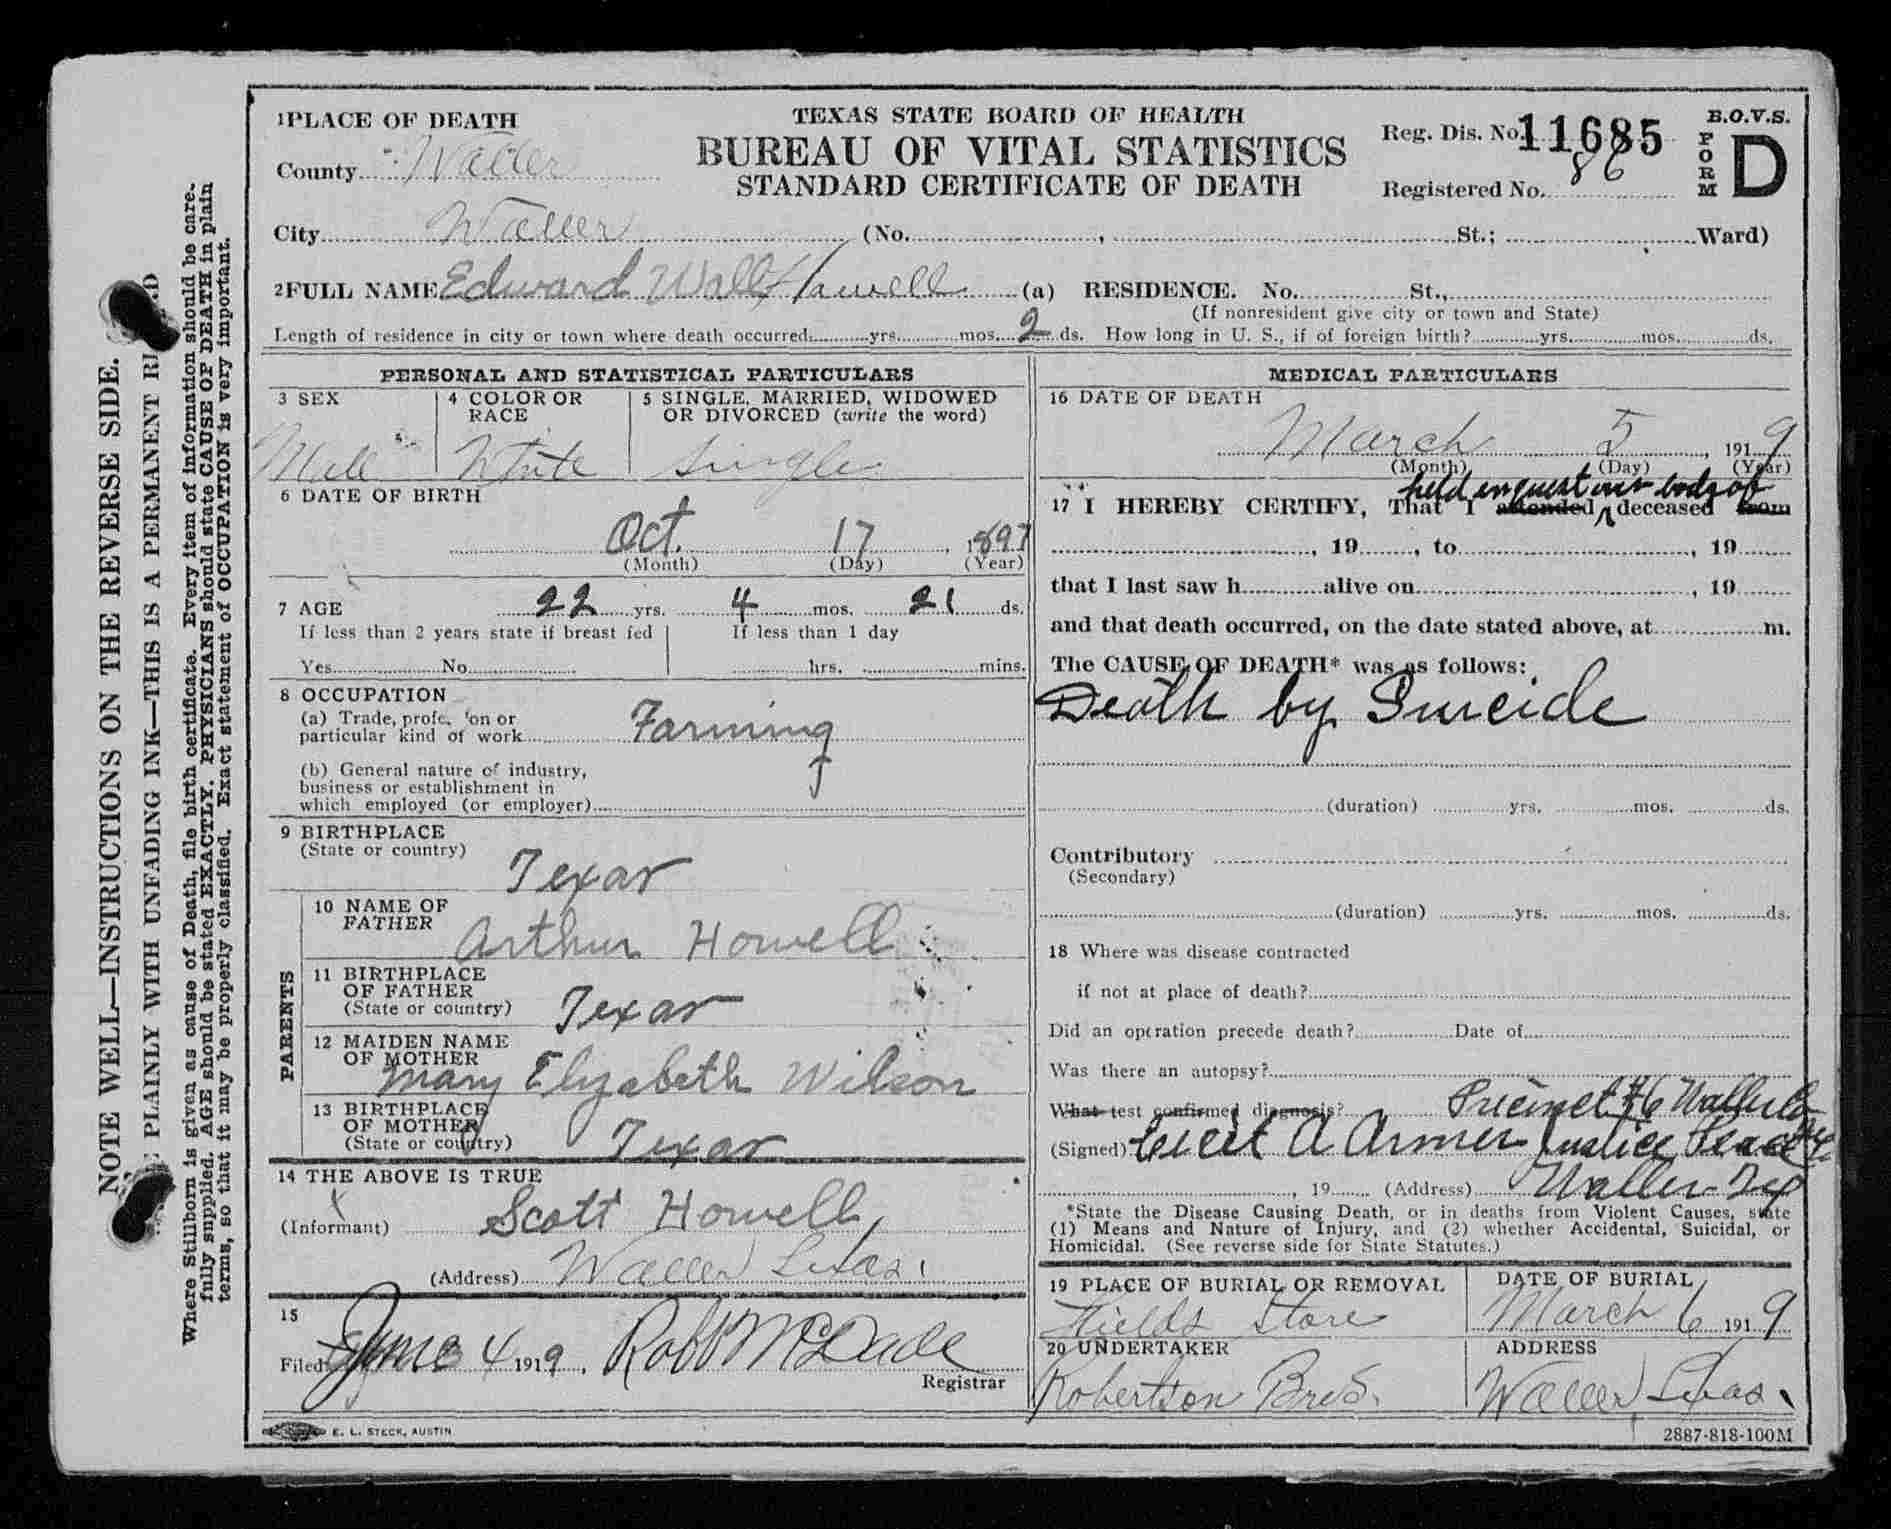 NOTE WELL—INSTRUCTIONS ON THE REVERSE SIDE.
PLAINLY WITH UNFADING INK—THIS IS A PERMANENT
Where Stillborn is given as cause of Death, file birth certificate. Every item of information should be care-
fully supplied. AGE should be stated EXACTLY. PHYSICIANS should state CAUSE OF DEATH in plain
terms, so that it may be properly classified. Exact statement of OCCUPATION is very important.
1 PLACE OF DEATH
County Waller
TEXAS STATE BOARD OF HEALTH
BUREAU OF VITAL STATISTICS
STANDARD CERTIFICATE OF DEATH
Reg. Dis. No. 11685
Registered No. 86
B.O.V.S.
FORM D
City Waller (No. , St.; Ward)
2 FULL NAME Edward Wall Howell (a) RESIDENCE. No. St.,
(If nonresident give city or town and State)
Length of residence in city or town where death occurred yrs. mos. 2 ds. How long in U. S., if of foreign birth? yrs. mos. ds.
PERSONAL AND STATISTICAL PARTICULARS
3 SEX
Male
4 COLOR OR RACE
White
5 SINGLE, MARRIED, WIDOWED
OR DIVORCED (write the word)
Single
6 DATE OF BIRTH
Oct. 17, 1897
(Month) (Day) (Year)
7 AGE 22 yrs. 4 mos. 21 ds.
If less than 2 years state if breast fed
Yes No
If less than 1 day
hrs. mins.
8 OCCUPATION
(a) Trade, profe on or
particular kind of work Farming
(b) General nature of industry,
business or establishment in
which employed (or employer)
9 BIRTHPLACE
(State or country) Texas
PARENTS
10 NAME OF
FATHER Arthur Howell
11 BIRTHPLACE
OF FATHER
(State or country) Texas
12 MAIDEN NAME
OF MOTHER
Mary Elizabeth Wilson
13 BIRTHPLACE
OF MOTHER
(State or country) Texas
14 THE ABOVE IS TRUE
(Informant) Scott Howell
(Address) Waller Texas.
15
Filed June 4 1919, Robt McDade
Registrar
MEDICAL PARTICULARS
16 DATE OF DEATH
March 5, 1919
(Month) (Day) (Year)
held inquest over body of
17 I HEREBY CERTIFY, That I attended deceased from
, 19 , to , 19
that I last saw h alive on , 19
and that death occurred, on the date stated above, at m.
The CAUSE OF DEATH* was as follows:
Death by Suicide
(duration) yrs. mos. ds.
Contributory
(Secondary)
(duration) yrs. mos. ds.
18 Where was disease contracted
if not at place of death?
Did an operation precede death? Date of
Was there an autopsy?
What test confirmed diagnosis? Precinct #6 Waller Co
(Signed) A Armer Justice Peace
, 19 (Address) Waller Tex
*State the Disease Causing Death, or in deaths from Violent Causes, state
(1) Means and Nature of Injury, and (2) whether Accidental, Suicidal, or
Homicidal. (See reverse side for State Statutes.)
19 PLACE OF BURIAL OR REMOVAL
Fields Store
DATE OF BURIAL
March 6 1919
20 UNDERTAKER
Robertson Bros.
ADDRESS
Waller, Texas.
E. L. STECK, AUSTIN
2887-818-100M